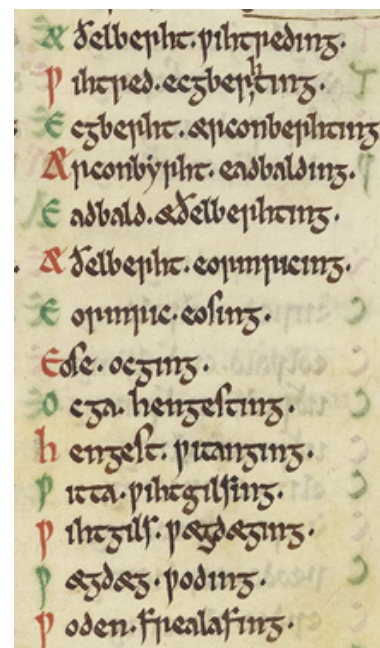 Æðelberht . ƿihtreding .
Ƿihtred . ecgberhting .
Ecgberht . ærconberhting
Ærconbyrht . eadbalding .
Eadbald . æðelberhting .
Æðelberht . eormnricing .
Eormnric . eosing .
Eose . ocging .
Ocga . hengesting .
Hengest . ƿitanging .
Ƿitta . ƿihtgilsing .
Ƿihtgils . ƿægdæging .
Ƿægdæg . ƿoding .
Ƿoden . frealafing .